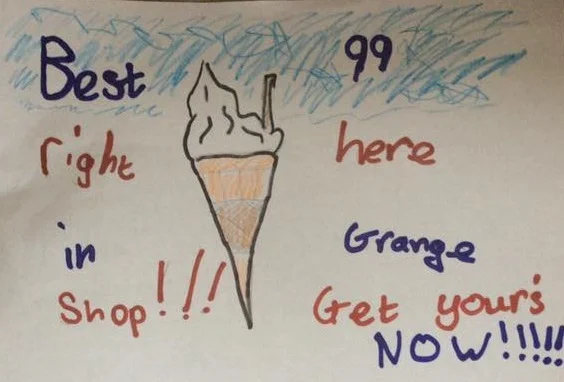 Best 99
right here
in Grange
Shop!!! Get your's
NOW!!!!!